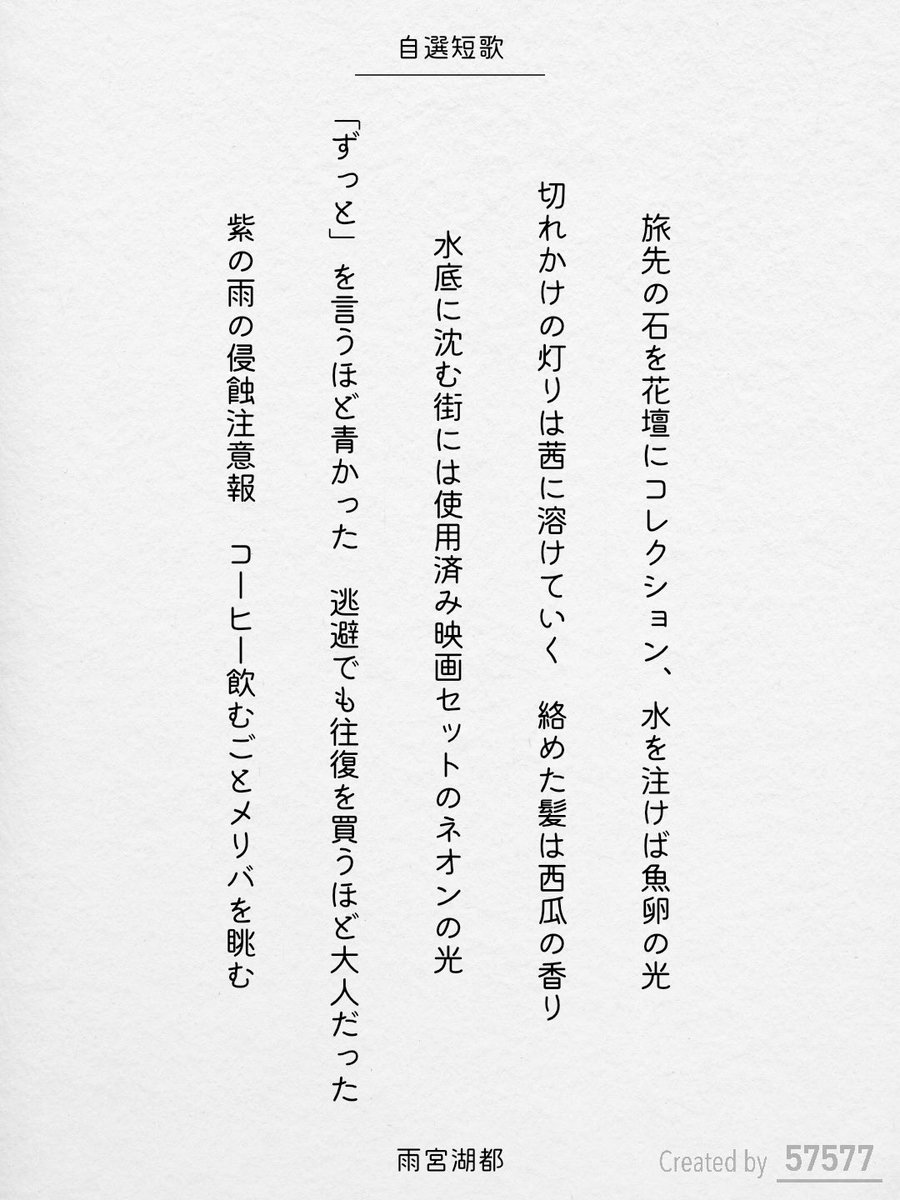 自選短歌
旅先の石を花壇にコレクション、水を注けば魚卵の光
切れかけの灯りは茜に溶けていく　絡めた髪は西瓜の香り
水底に沈む街には使用済み映画セットのネオンの光
「ずっと」を言うほど青かった　逃避でも往復を買うほど大人だった
紫の雨の侵蝕注意報　コーヒー飲むごとメリバを眺む
雨宮湖都
Created by 57577